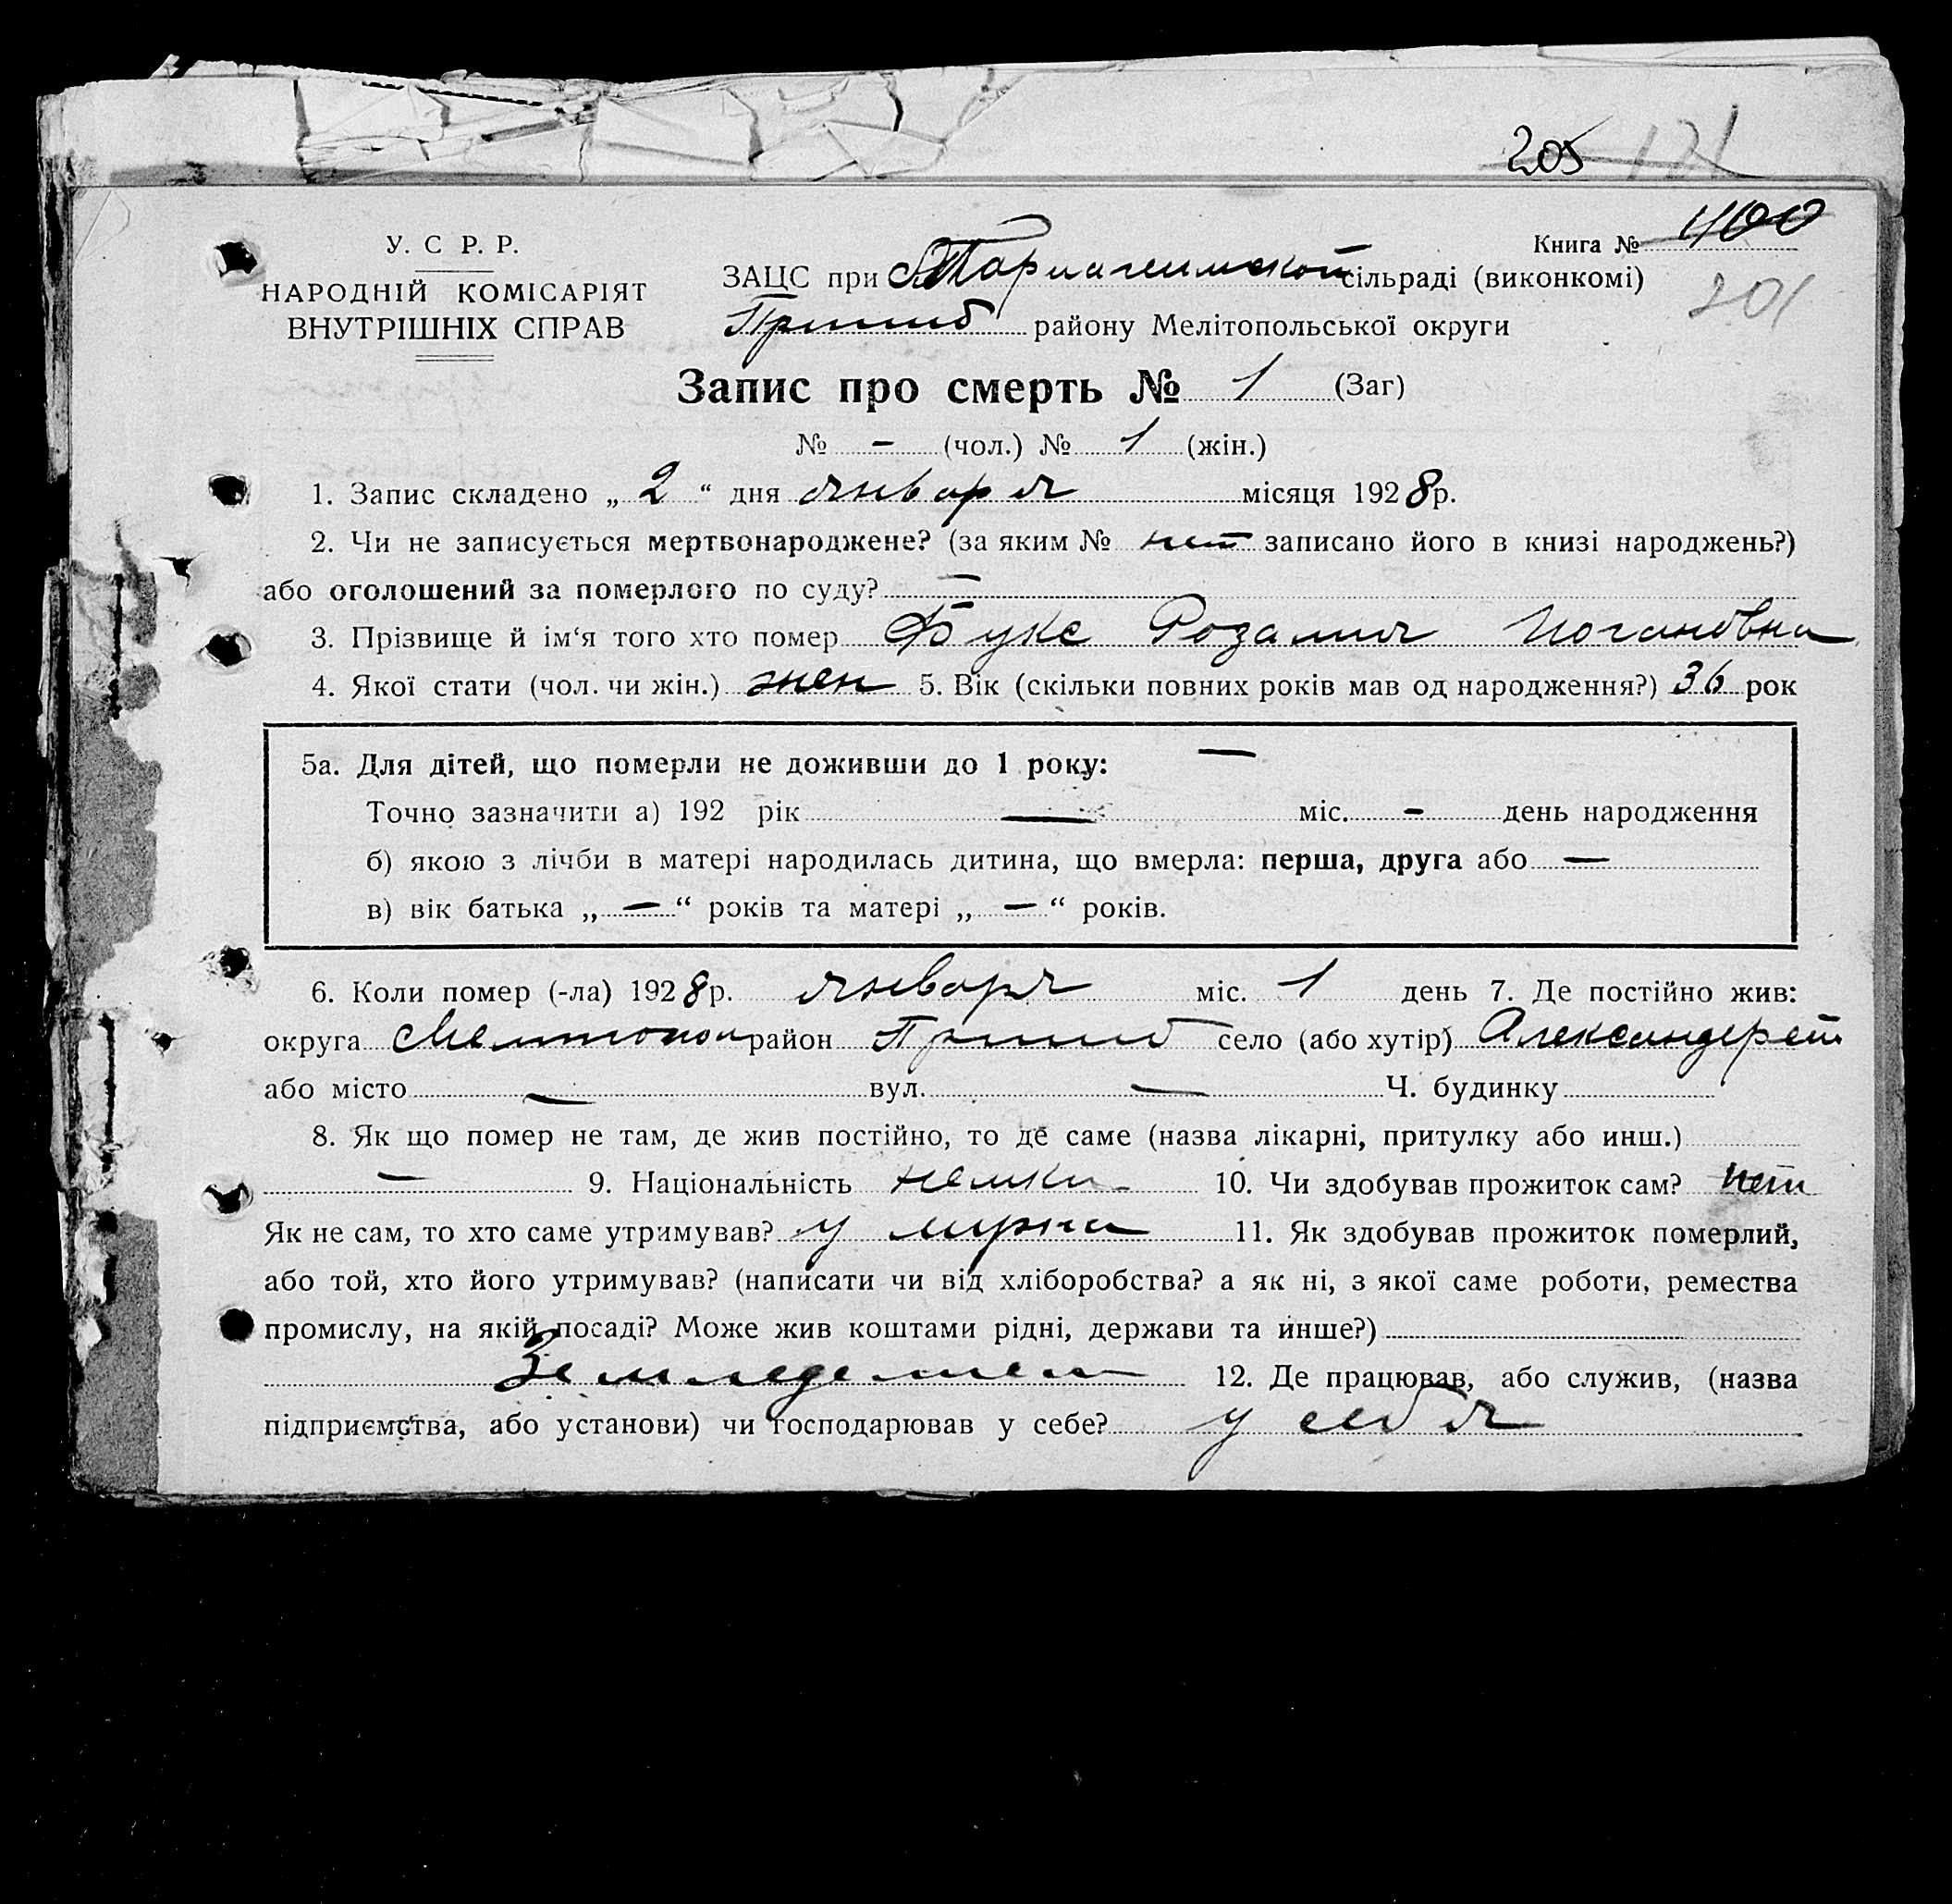 205 121
У. С Р. Р.
НАРОДНІЙ КОМІСАРІЯТ
ВНУТРІШНІХ СПРАВ
Книга № 400
201
ЗАЦС при сільраді (виконкомі)
Пришиб району Мелітопольської округи
Запис про смерть № 1 (Заг)
№ – (чол.) № 1 (жін.)
1. Запис складено „ 2 “ дня января місяця 1928р.
2. Чи не записується мертвонароджене? (за яким № нет записано його в книзі народжень?)
або оголошений за померлого по суду? —
3. Прізвище й ім‘я того хто помер Букс Розалия Иогановна
4. Якої стати (чол. чи жін.) жен 5. Вік (скільки повних років мав од народження?) 36 рок
5а. Для дітей, що померли не доживши до 1 року: —
Точно зазначити а) 192 рік — міс. – день народження
б) якою з лічби в матері народилась дитина, що вмерла: перша, друга або —
в) вік батька „ — “ років та матері „ — “ років.
6. Коли помер (-ла) 1928р. января міс. 1 день 7. Де постійно жив:
округа Мелитопол район Пришиб село (або хутір) Александерет
або місто — вул. — Ч. будинку
8. Як що помер не там, де жив постійно, то де саме (назва лікарні, притулку або инш.)
— 9. Національність немка 10. Чи здобував прожиток сам? нет
Як не сам, то хто саме утримував? у мужа 11. Як здобував прожиток померлий,
або той, хто його утримував? (написати чи від хліборобства? а як ні, з якої саме роботи, ремества
промислу, на якій посаді? Може жив коштами рідні, держави та инше?)
12. Де працював, або служив, (назва
підприємства, або установи) чи господарював у себе? у себя